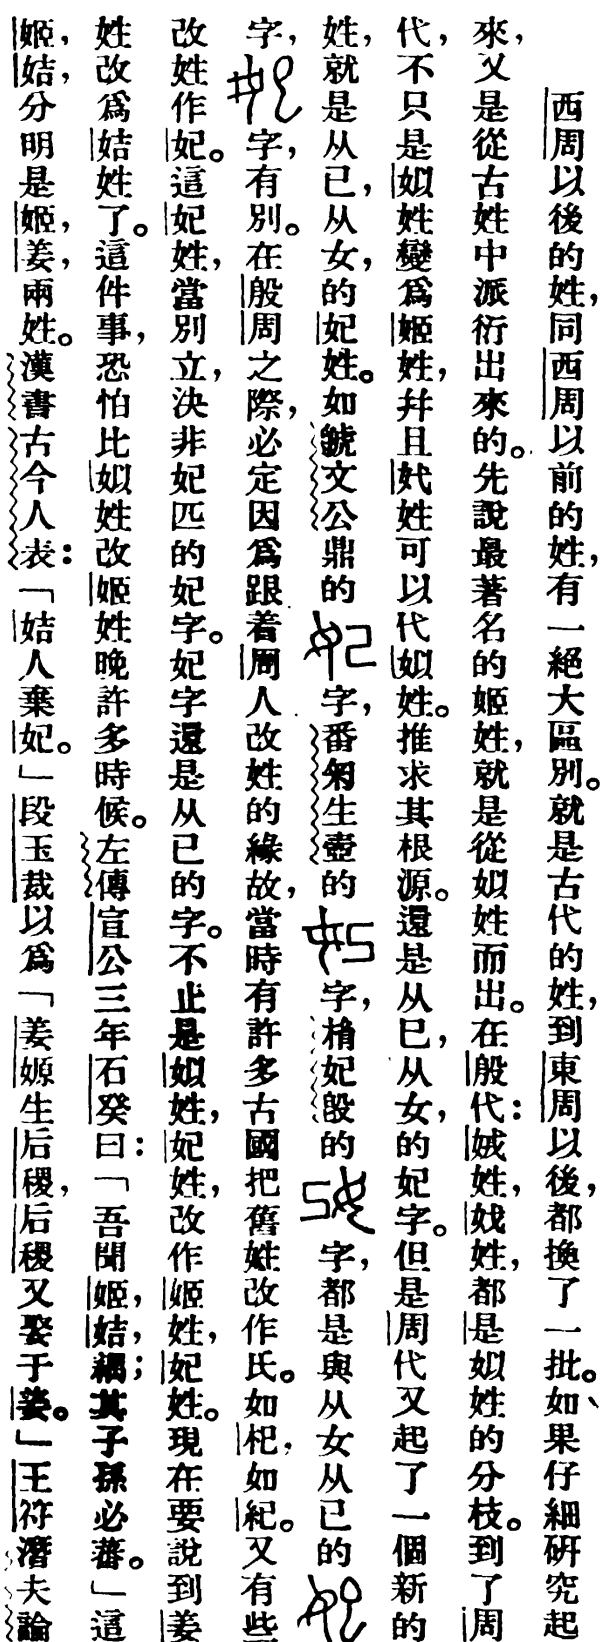 西周以後的姓,同西周以前的姓,有一絕大區別。就是古代的姓,到東周以後,都換了一批。如果仔細硏究起
來,又是從古姓中派衍出來的。先說最著名的姬姓,就是從姒姓而出。在殷代:娀姓,姓,都是姒姓的分枝。到了周
代,不只是姒姓變爲姬姓,幷且姓可以代姒姓。推求其根源。還是从巳,从女,的妃字。但是周代又起了一個新的
姓,就是从已,从女,的妃姓。如虢文公鼎的字,番匊生壺的字,妃殷的字都是與从女从已的
字,字,有別。在殷周之際,必定因爲跟着周人改姓的緣故,當時有許多古國把舊姓改作氏。如杞,如紀。又有些
改姓作妃。這妃姓,當別立,決非妃匹的妃字。妃字還是从已的字。不止是姒姓,妃姓,改作姬姓,妃姓。現在要說到姜
姓改爲姞姓了。這件事,恐怕比姒姓改姬姓晚許多時候。左傳宣公三年石癸曰:「吾聞姬,姞,耦;其子孫必蕃。」這
姬,姞,分明是姬,姜,兩姓。漢書古今人表:「姞人棄妃。」段玉裁以爲「姜嫄生后稷,后稷又娶于姜。」王符潛夫論